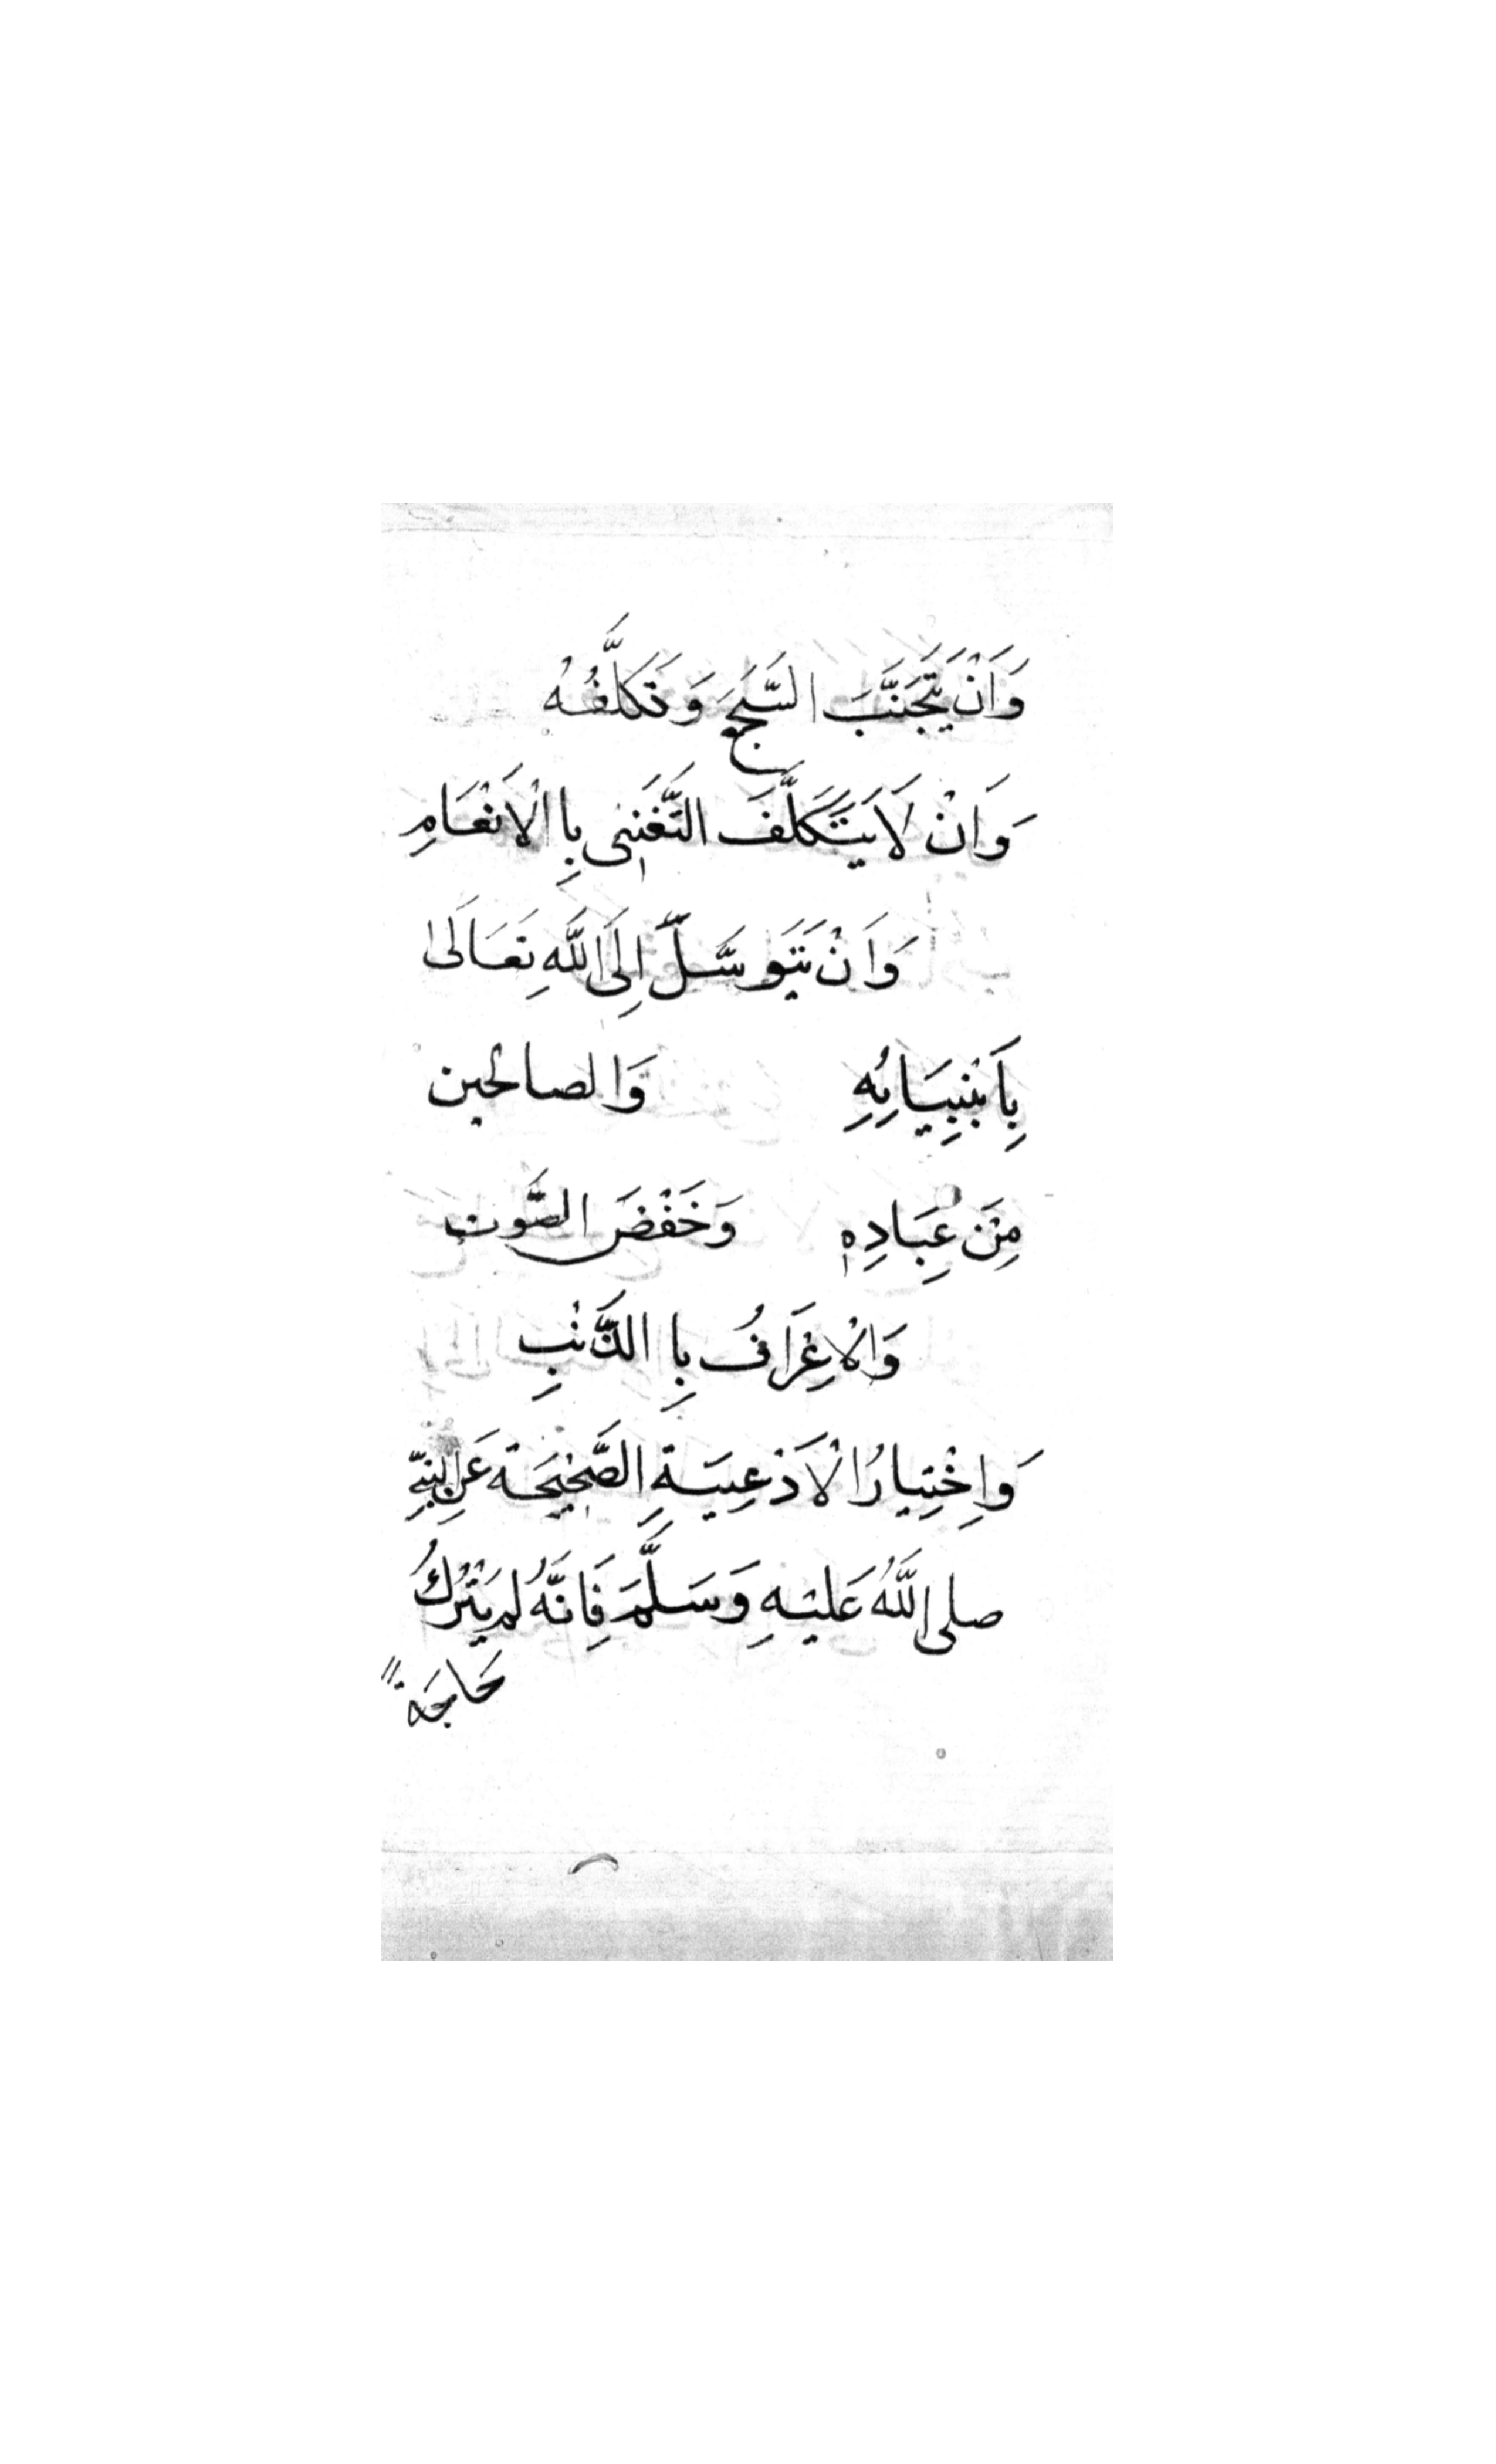 وَاَنْ يَتَجَنَّبَ السَّجَعَ وَتَكَلَّفُهُ
وَاَنْ لَايَتَكَلَّفَ التَّغَنِى بِا الْاَنْعَامِ
وَاَنْ يَتَوَسَّلَّ اِلَى اللَّهِ تَعَالَى
بِاَنْبِيَايِهِ وَالصالحين
مِنْ عِبَادِهِ وَخَفْضَ الصَّوت
وَالْاعِتْرَافُ بِا الذَّنْبِ
وَاِخْتِيارُ الْاَدْعِيَةِ الصَّحِيْحَة عَنِ النبِيِّ
صلى اللَّهُ عَلَيْهِ وَسَلَّمَ فَاِنَّهُ لم يَتْرُكُ
حَاجَةً